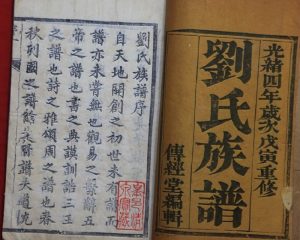 光緒四年歲次戊寅重修
劉氏族譜
傳經堂編輯
劉氏族譜序
自天地開創之世未有譜而
譜亦未嘗無也觀易之繫辭五
帝之譜也書之典謨訓誥三王
之譜也詩之雅頌周之譜也春
秋列國之譜